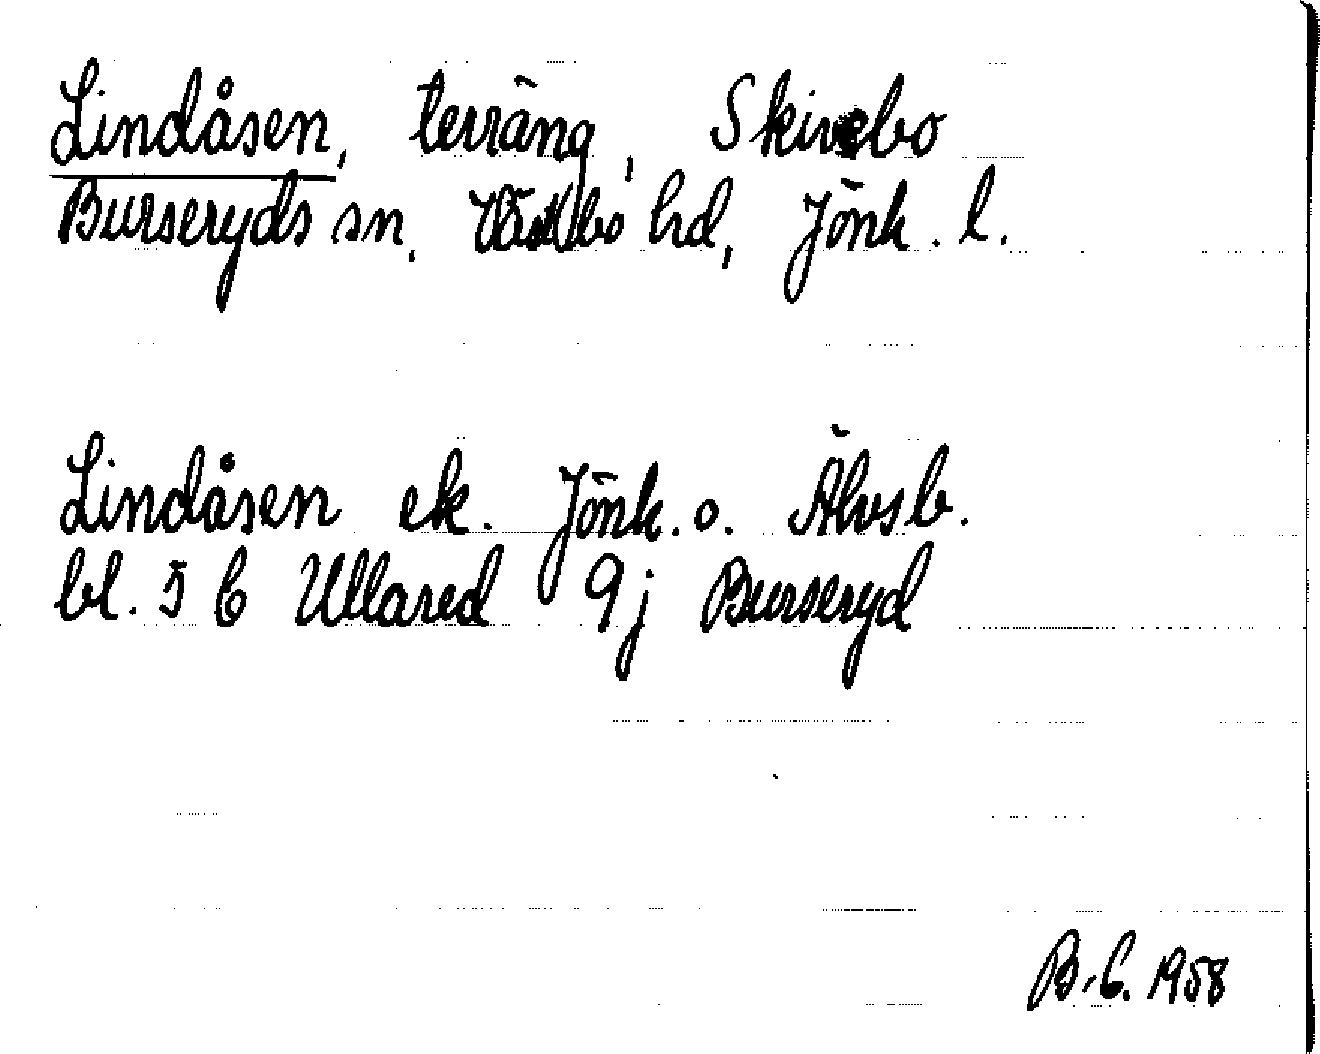 Lindåsen, terräng, Skirebo
Burseryds sn, Västbo hd, Jönk. l.
Lindåsen ek. Jönk. o. Älvsb.
bl. 5 C Ullared 9j Burseryd
B.C. 1958